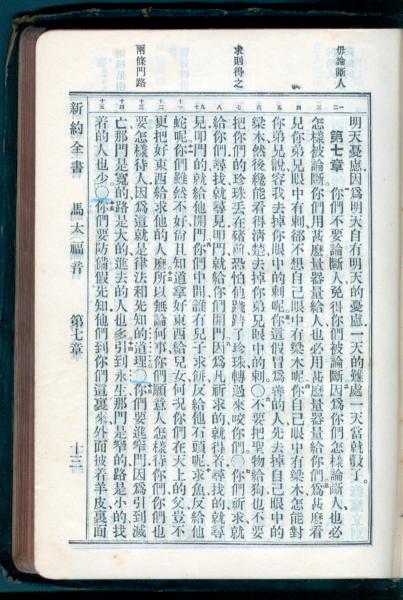 毋論斷人
求則得之
兩條門路
明天憂慮因爲明天自有明天的憂慮一天的難處一天當就彀了。
第七章 你們不要論斷人免得你們被論斷因爲你們怎樣論斷人也必
怎樣被論斷你們用甚麽量器量給人也必用甚麽量器量給你們爲甚麽看
見你弟兄眼中有刺卻不想自己眼中有梁木呢你自己眼中有梁木怎能對
你弟兄說容我去掉你眼中的刺呢你這假冒爲善的人先去掉自己眼中的
梁木然後纔能看得清楚去掉你弟兄眼中的刺〇不要把聖物給狗也不要
把你們的珍珠丟在豬前恐怕他踐踏了珍珠轉過來咬你們〇你們祈求就
給你們尋找就尋見叩門就給你們開門因爲凡祈求的就得着尋找的就尋
見叩門的就給他開門你們中間誰有兒子求餅反給他石頭呢求魚反給他
蛇呢你們雖然不好尚且知道拿好東西給兒女何况你們在天上的父豈不
更把好東西給求他的人麽所以無論何事你們願意人怎樣待你們你們也
要怎樣待人因爲這就是律法和先知的道理〇你們要進窄門因爲引到滅
亡那門是寬的路是大的進去的人也多引到永生那門是窄的路是小的找
着的人也少〇你們要防備假先知他們到你們這裏來外面披着羊皮裏面
新約全書 馬太福音 第七章 十三